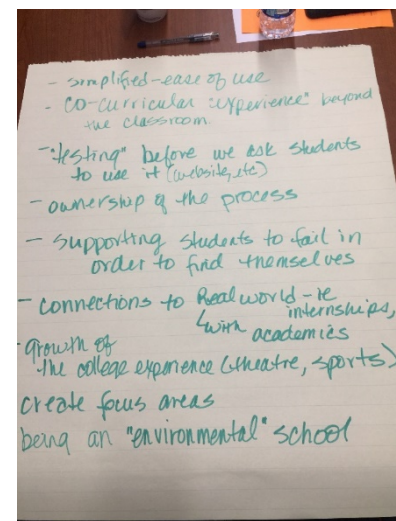 - simplified-ease of use
- co-curricular "experience" beyond
the classroom
- "testing" before we ask students
to use it (website, etc)
- ownership of the process
- supporting students to fail in
order to find themselves
- connections to Real world - ie
internships,
with academies
- growth of
the college experience (theatre, sports)
create focus areas
being an "environmental" school